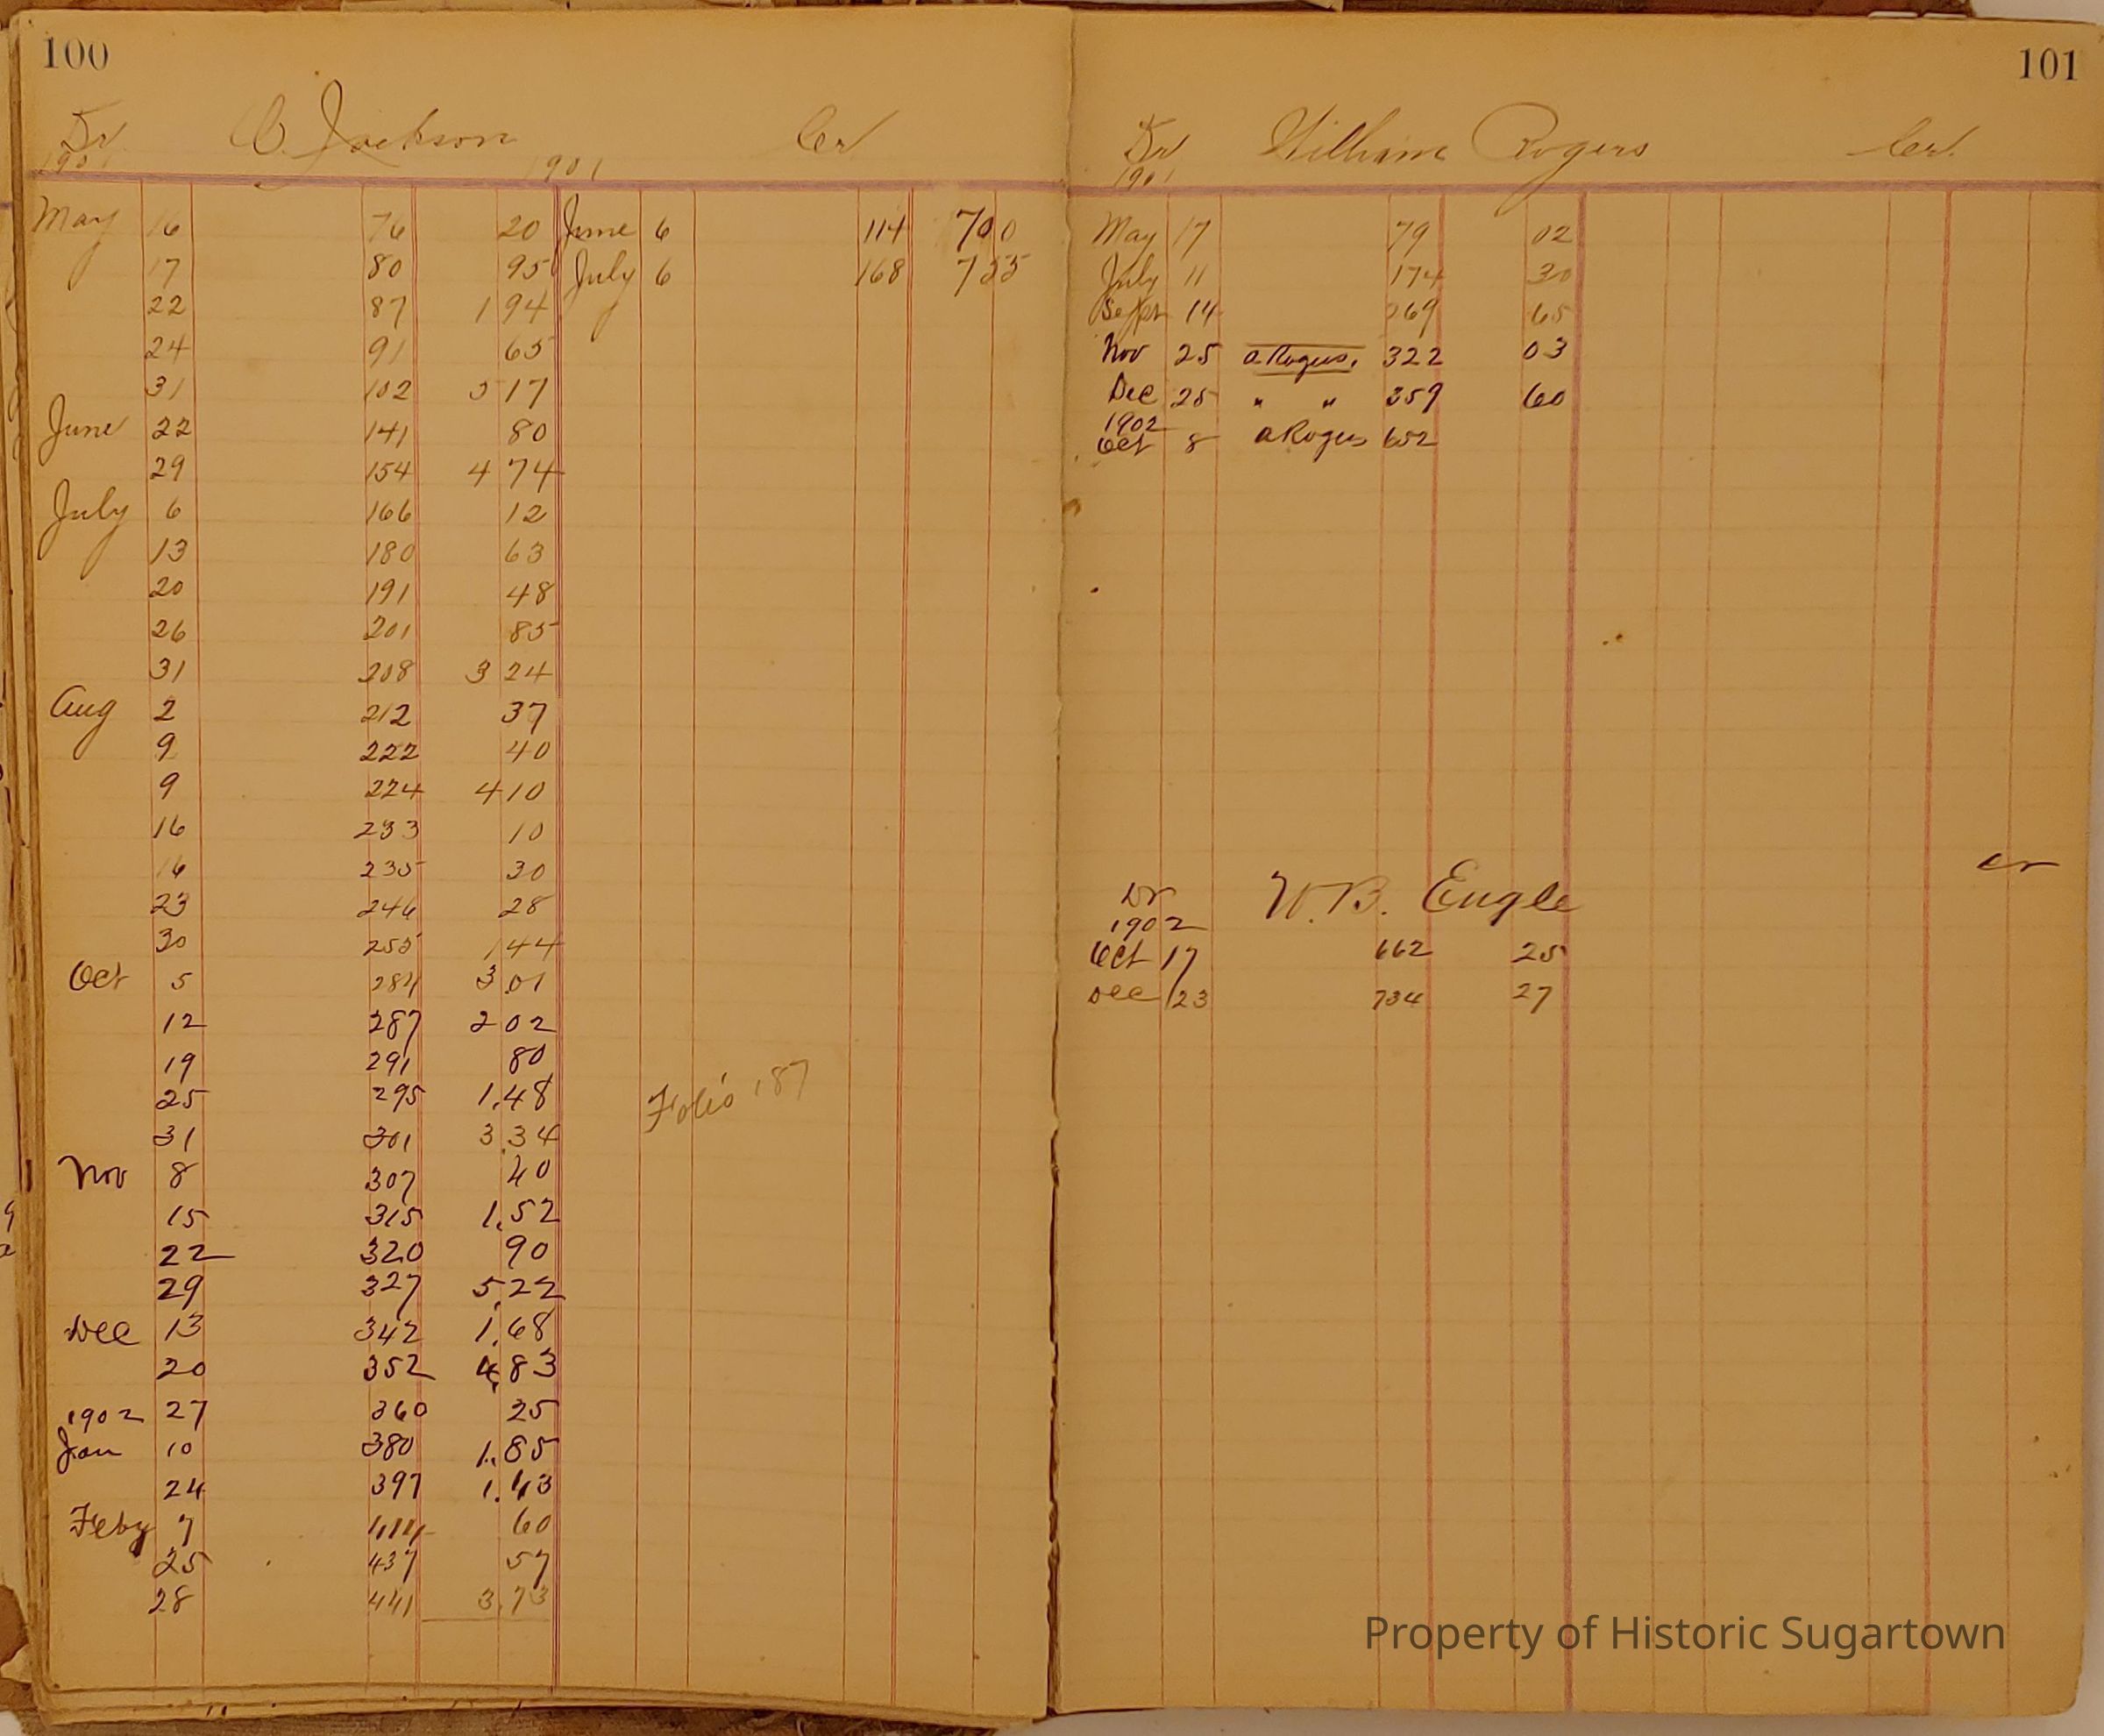 100
Dr C. Jackson Cr
1901 1901
May 16 76 20 June 6 114 7 00
17 80 95 July 6 168 7 55
22 87 1 94
24 91 65
31 102 5 17
June 22 141 80
29 154 4 74
July 6 166 12
13 180 63
20 191 48
26 201 85
31 208 3 24
Aug 2 212 37
9 222 40
9 224 4 10
16 233 10
16 235 30
23 246 28
30 255 1 44
Oct 5 281 3.01
12 287 2 02
19 291 80
25 295 1.48
Folio 187
31 301 3.34
Nov 8 307 40
15 315 1.52
22 320 90
29 327 5.22
Dec 13 342 1.68
20 352 4.83
27 360 25
1902
Jan 10 380 1.85
24 397 1.43
Feby 7 60
25 437 57
28 441 3.73
101
Dr William Rogers Cr.
1901
May 17 79 02
July 11 174 30
Sept 14 269 65
Nov 25 a Rogers. 322 03
Dec 25 " " 359 60
1902
Oct 8 a Rogers 652
Dr W. B. Eugle cr
1902
Oct 17 662 25
Dec 23 734 27
Property of Historic Sugartown